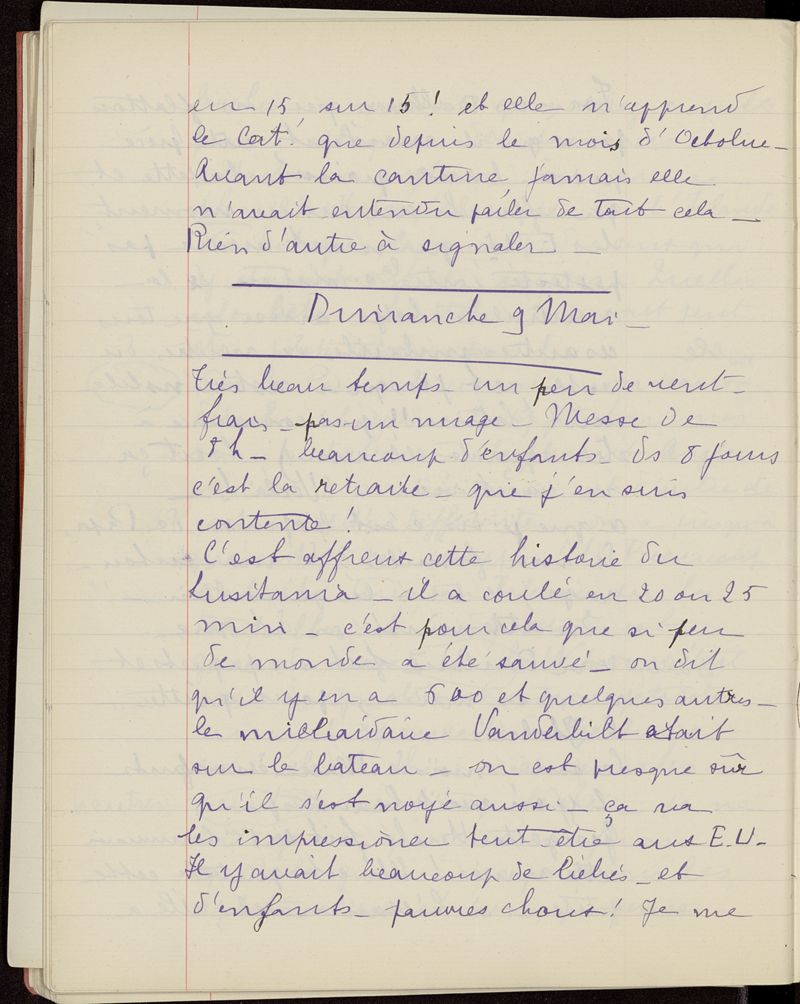 eu 15 sur 15! et elle n'apprend
le Cat. que depuis le mois d'Octobre_
Avant la cantine, jamais elle
n'avait entendu parler de tout cela_
Rien d'autre à signaler_
Dimanche 9 Mai_
Très beau temps un peu de vent_
frais_ pas un nuage_ Messe de
8h_ beaucoup d'enfants_ ds 8 jours
c'est la retraite_ que j'en suis
contente!
C'est affreux cette histoire du
Lusitania_ il a coulé en 20 ou 25
min_ c'est pour cela que si peu
de monde a été sauvé_ on dit
qu'il y en a 600 et quelques autres_
le milliardaire Vanderbilt était
sur le bateau_ on est presque sûr
qu'il s'est noyé aussi_ ça va
les impressionner peut-être aux E.U_
Il y avait beaucoup de bébés_ et
d'enfants_ pauvres choux! Je me